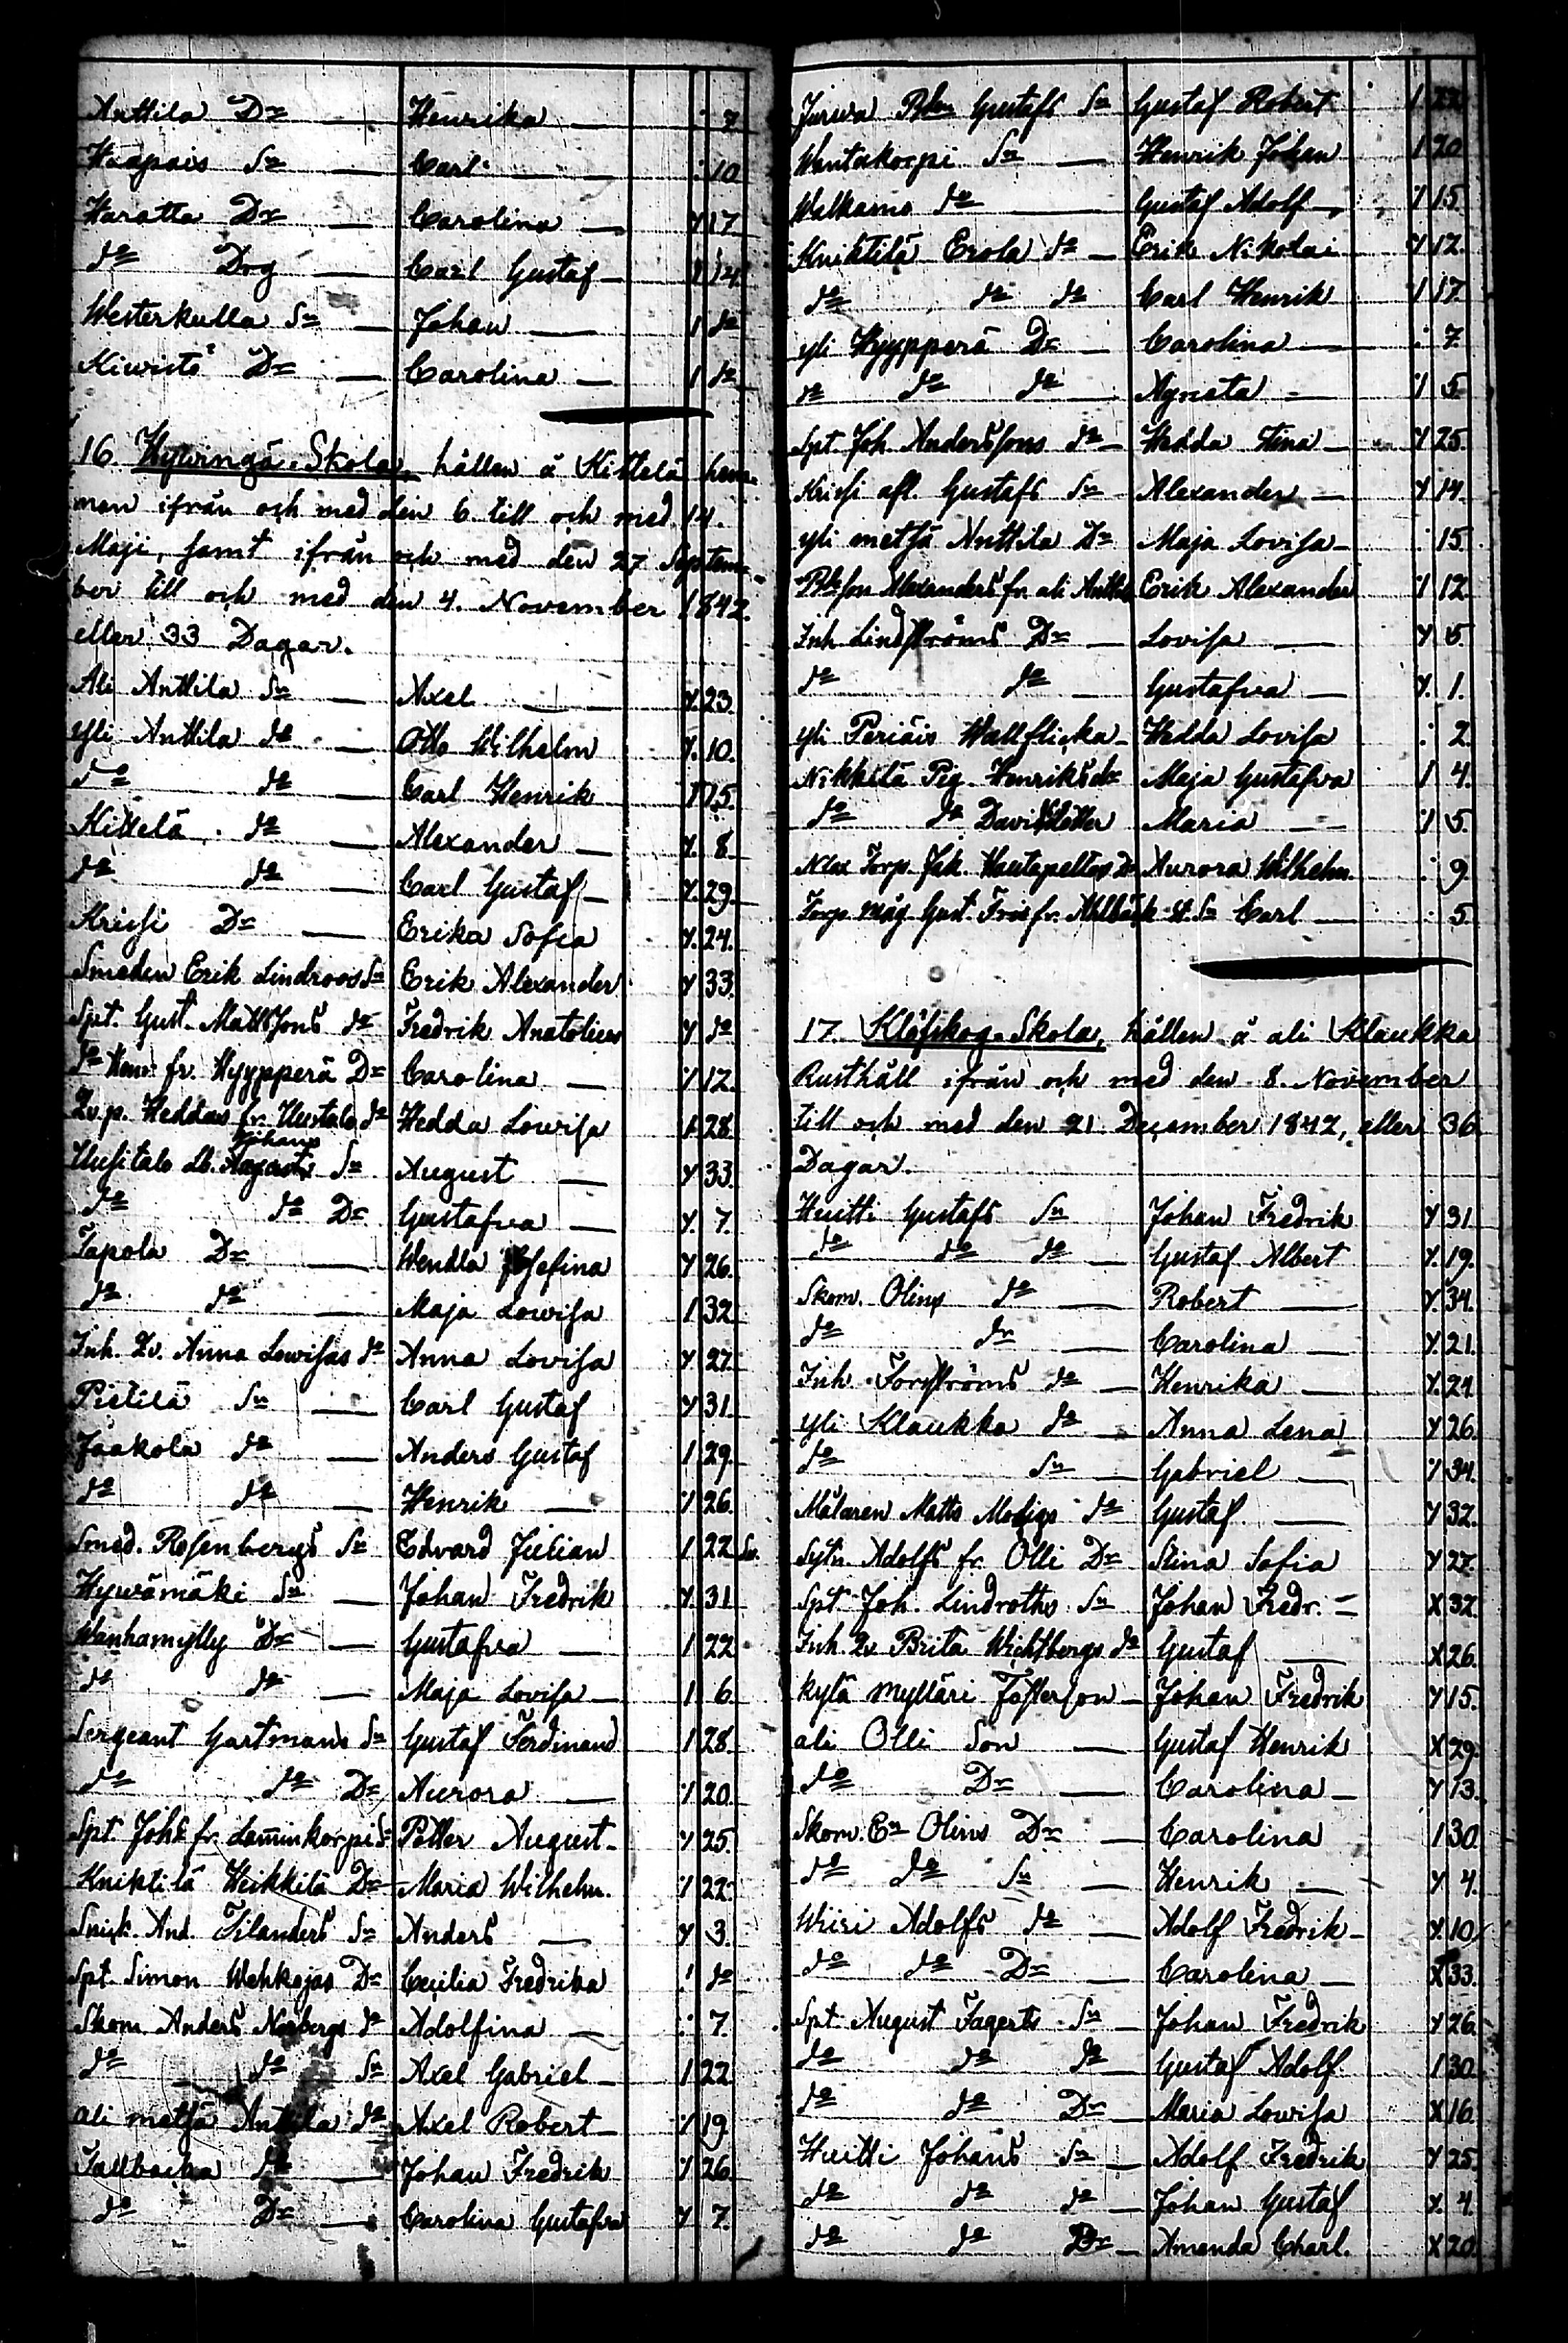 Anttila Dr — Henrika — : 7
Haapais Sn — Carl — : 10
Haratta Dr — Carolina — Y 17
do Drg — Carl Gustaf — 1 14
Westerkulla Sn — Johan — 1 do
Kiwistö Dr — Carolina — 1 do
16 Hyvingä Skola, hållen å Kittelä hem-
man ifrån och med den 6. till och med 14.
Maji, samt ifrån och med den 27 Septem-
ber till och med den 4. November 1842.
eller 33 Dagar.
Ali Anttila Sn — Axel — Y. 23.
Yli Anttila do — Otto Wilhelm Y. 10.
do do — Carl Henrik 1 15.
Kittelä do — Alexander — Y. 8
do do — Carl Gustaf — Y. 29.
Krissi Dr — Erika Sofia Y. 24.
Smeden Erik Lindroos Sn Erik Alexander Y 33.
Spt. Gust. Mattssons do Fredrik Anatolius Y do
do Henr fr. Hyypperä Dr Carolina — 1 12.
Qv.p. Heddas fr. Uustalo do Hedda Lowisa 1 28.
Uusitalo Lb. Johans Sn August — Y 33.
do do Dr Gustafva — Y. 7.
Tapola Dr — Wendla Josefina Y 26.
do do — Maja Lowisa 1 32
Inh. Qv. Anna Lowisas do Anna Lovisa Y 27.
Pietilä Sn — Carl Gustaf Y 31
Jaakola do — Anders Gustaf 1 29.
do do — Henrik — 1 26.
Smed. Rosenbergs Sn Edvard Julian 1 22
Hywämäki Sn — Johan Fredrik Y. 31
Wanhamylly Dr — Gustafva — 1 22
do do — Maja Lovisa — 1 6
Sergeant Gartmans Sn Gustaf Ferdinand 1 28.
do do Dr Aurora — 1 20.
Spt. Johs fr. Lamminkorpi Sn Petter August — Y 25.
Kniktilä Heikkilä Dr Maria Wilhelm. 1 22
Snick. And. Filanders Sn Anders — Y 3.
Spt. Simon Wehkojas Dr Cecilia Fredrika 1 do
Skom. Anders Norbergs do Adolfina — : 7.
do do Sn Axel Gabriel — 1 22
Ali metsä Anttila do Axel Robert — 1 19
Tallbacka Sn — Johan Fredrik 1 26
do Dr — Carolina Gustafva Y 7.
Jurwa Gustafs Sn Gustaf Robert 1 22
Hautakorpi Sn — Henrik Johan 1 20
Walkamo do — Gustaf Adolf — 1 15.
Kniktilä Erola do — Erik Nikolai — Y 12.
do do do Carl Henrik 1 17
yli Hyypperä Dr — Carolina — : 7
do do do Agneta — 1 5
Spt. Joh. Anderssons do — Hedda Stina — Y 25.
Krissi afl. Gustafs Sn Alexander — Y 14.
yli metsä Anttila Dr Maja Lovisa — : 15
Alexanders fr. ali Anttila Erik Alexander 1 12.
Inh Lindströms Dr — Lovisa — Y. 5.
do do — Gustafva — Y. 1.
yli Periäis Wallflicka — Hedda Lovisa : 2.
Nikkilä Pig. Henriksdr Maja Gustafva 1 4.
do do Davidsdotter Maria — 1 5.
Torp. Jak. Hautapeltos Dr Aurora Wilhelm : 9
Torp. måg Gust. Fris fr. Ahlbäck st. Sn Carl — 5
17. Klöfskog Skola, hållen å ali Klaukka
Rusthåll ifrån och med den 8. November
till och med den 21. December 1842, eller 36
Dagar.
Huitti Gustafs Sn Johan Fredrik Y 31
do do do — Gustaf Albert Y. 19.
Skom. Olins do — Robert — Y. 34.
do dr — Carolina — Y. 21.
Inh. Forsströms do — Henrika — Y. 24
yli Klaukka do — Anna Lena Y 26.
do Sn — Gabriel — 1 34.
Målaren Matts Modigs do Gustaf — Y 32.
Sytn Adolfs fr. Olli Dr Stina Sofia Y 27.
Spt Joh. Lindroths Sn Johan Fredr. — X 32.
Inh. Qv Brita Wichtbergs do Gustaf — X 26.
kylä mylläri Fosterson — Johan Fredrik Y 15.
ali Olli Son — Gustaf Henrik X 29.
do Dr — Carolina — Y 13.
Skom. En Olins Dr — Carolina 1 30.
do do Sn — Henrik — Y 4.
Wiiri Adolfs do — Adolf Fredrik — Y. 10
do do Dr — Carolina — X 33.
Spt. August Fagerts Sn — Johan Fredrik Y 26
do do do — Gustaf Adolf 1 30.
do do Dr — Maria Lowisa X 16
Huitti Johans Sn — Adolf Fredrik Y 25.
do do do — Johan Gustaf Y. 4.
do do Dr — Amanda Charl. X 20.